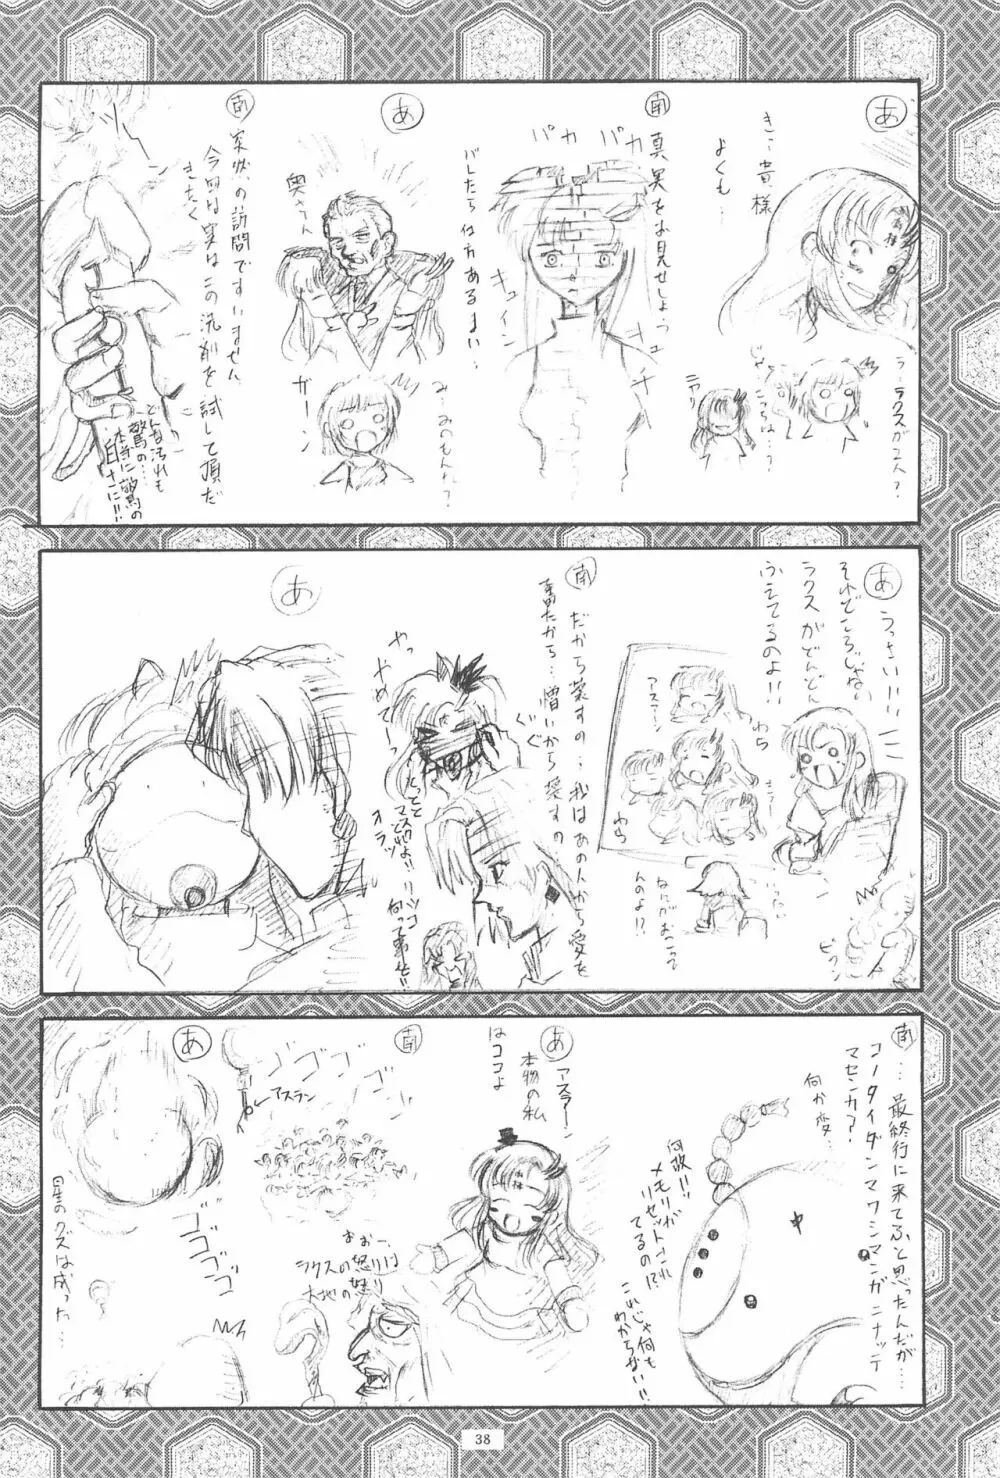 あ
き…貴様
よくも…
ラ…ラクスが二人?
じゃ
こっちは…?
ニヤリ
南
真実をお見せしょう
パカ
パカ
キュイン
キュ
バレたら仕方あるまい…
あ
奥さん
ガーン
みのもんた?
南
突然の訪問ですいません
今回は実はこの洗剤を試して頂だ
きたく
どんな汚れも
驚の…
本当に驚の
白さに!!
あ
うっさい!!!
それどころじゃない
ラクスがどんどん
ふえてるのよ!!
アスラーン
わら
わら
なにがおこって
んのよ!?
ビクン
南
だから葉すの…我はあの人から愛を
奪たから…憎いから
ぐぐ
やっ
やめてーっ
オラッ
あ
南
…最終行に来てふと思ったんだが…
コノタイダンマワシマンガニナッテ
マセンカ?
何か変…
中
何故!!
メモリが
リセットされ
てるの!?
これじゃ何も
わからない!!
あ
アスラーン
本物の私
はココよ
南
ゴゴゴゴ
おおー
ラクスの怒りは
大地の怒り
あ
アスラン
ゴゴゴゴ
星のクズは成った…
38